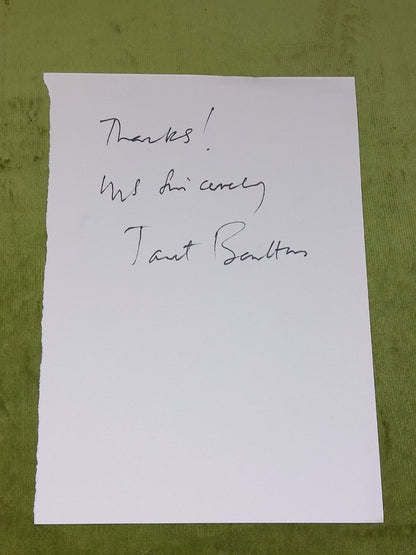 Thanks!
Yrs Sincerely
Janet Boulton